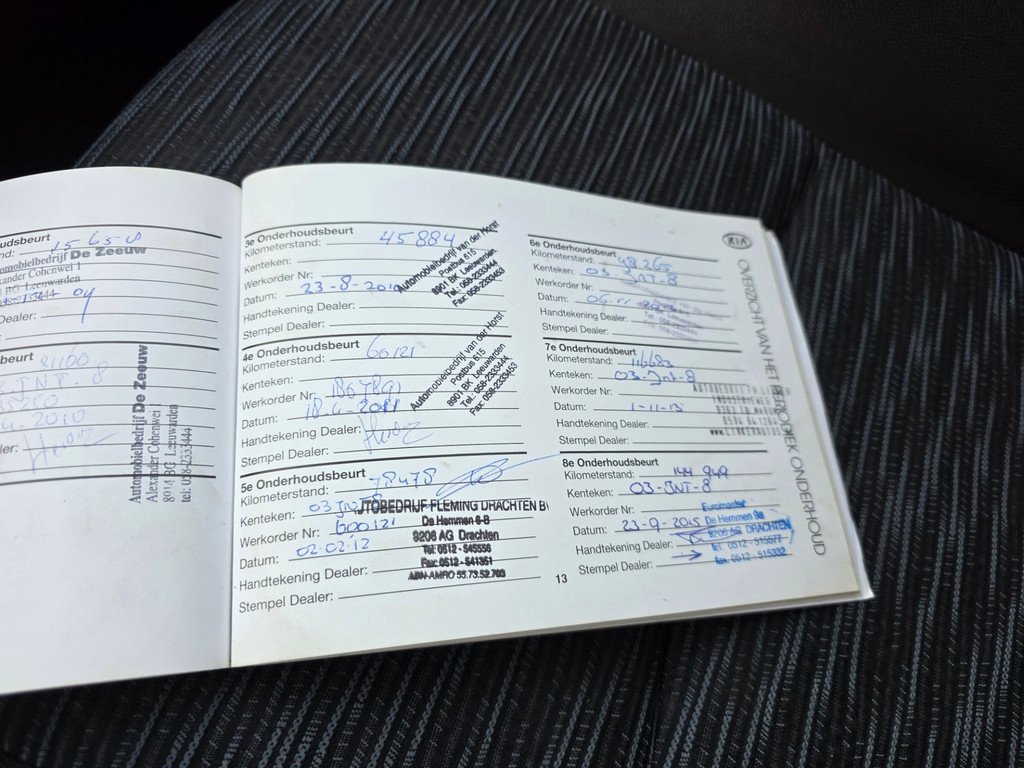 oudsbeurt
nd: 15650
omobielbedrijf De Zeeuw
exander Cohenwei 1
BG Leeuwarden
Dealer:
beurt
31160
JNT-8
2010
ler:
Automobielbedrijf De Zeeuw
Alexander Cohenwei 1
8914 BG Leeuwarden
tel: 058-2133444
3e Onderhoudsbeurt
Kilometerstand: 45884
Kenteken:
Werkorder Nr:
Datum: 23-8-2010
Handtekening Dealer:
Stempel Dealer:
Automobielbedrijf van der Horst
Postbus 615
8901 BK Leeuwarden
Tel: 058-2333444
Fax: 058-2333453
4e Onderhoudsbeurt
Kilometerstand: 60121
Kenteken:
Werkorder Nr: 186789
Datum: 18-4-2011
Handtekening Dealer:
Stempel Dealer:
Automobielbedrijf van der Horst
Postbus 615
8901 BK Leeuwarden
Tel: 058-2333444
Fax: 058-2333453
5e Onderhoudsbeurt
Kilometerstand: 78478
Kenteken: 03 JNT
Werkorder Nr: 600121
Datum: 02-02-12
Handtekening Dealer:
Stempel Dealer:
UTOBEDRIJF FLEMING DRACHTEN BV
De Hemmen 6-B
9206 AG Drachten
Tel: 0512 - 545556
Fax: 0512 - 541351
ABN-AMRO 55.73.52.703
6e Onderhoudsbeurt
Kilometerstand: 98265
Kenteken: 03-JNT-8
Werkorder Nr:
Datum: 06-11
Handtekening Dealer:
Stempel Dealer:
7e Onderhoudsbeurt
Kilometerstand: 116683
Kenteken: 03-JNT-8
Werkorder Nr:
Datum: 1-11-13
Handtekening Dealer:
Stempel Dealer:
8e Onderhoudsbeurt
Kilometerstand: 144 949
Kenteken: 03-JNT-8
Werkorder Nr:
Datum: 23-9-2015
Handtekening Dealer:
Stempel Dealer:
Euromaster
De Hemmen 9a
9206 AG DRACHTEN
tel. 0512 - 515577
fax. 0512 - 515332
13
KIA
OVERZICHT VAN HET PERIODIEK ONDERHOUD